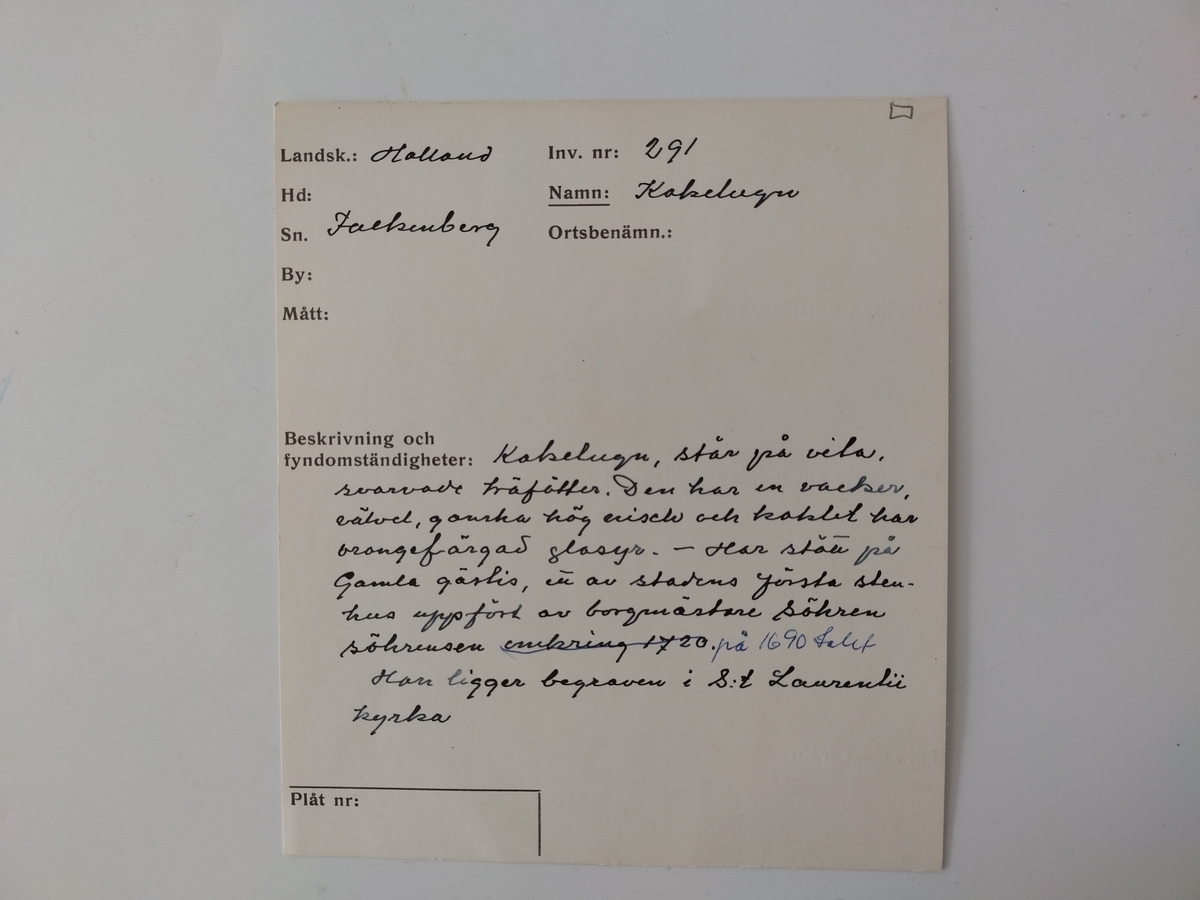 Landsk.: Halland Inv. nr: 291
Hd: Namn: Kakelugn
Sn. Falkenberg Ortsbenämn.:
By:
Mått:
Beskrivning och
fyndomständigheter: Kakelugn, står på vita,
svarvade träfötter. Den har en vacker,
välvd, ganska hög nisch och kaklet har
orangefärgad glasyr. – Har stått på
Gamla gästis, ett av stadens första sten-
hus uppfört av borgmästare Söhren
Söhrensen omkring 1720. på 1690 talet
Han ligger begraven i S:t Laurentii
kyrka
Plåt nr: